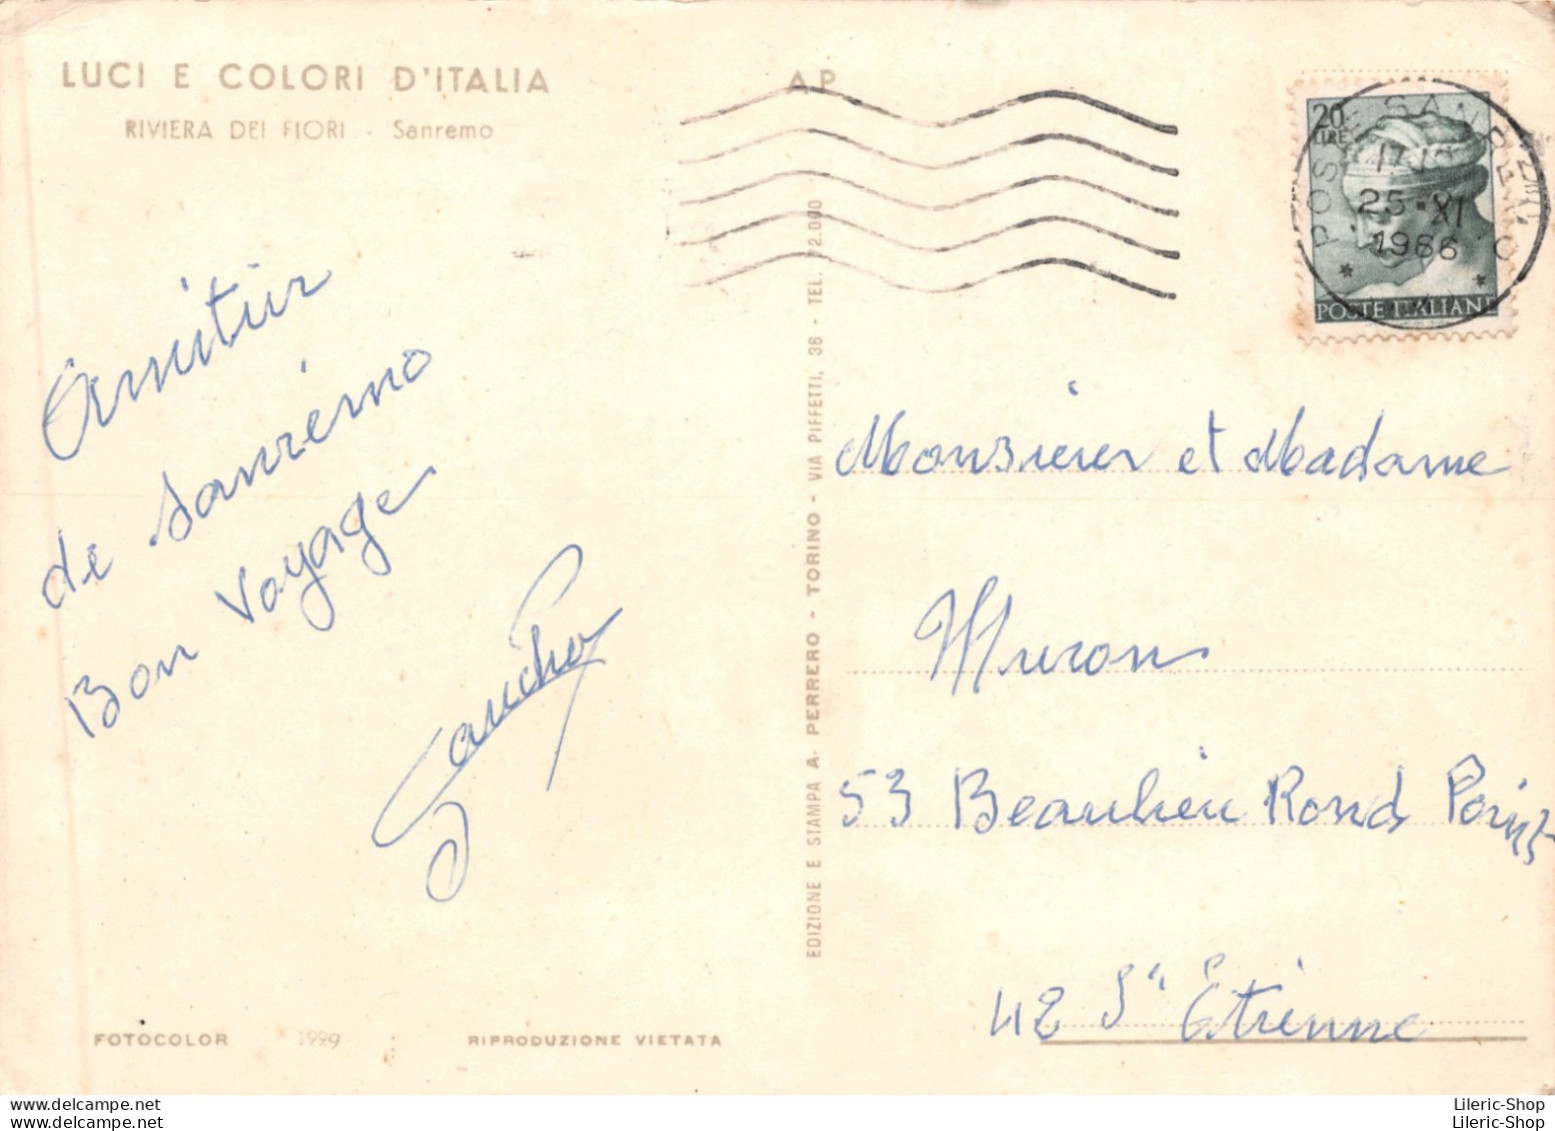 LUCI E COLORI D'ITALIA
RIVIERA DEI FIORI - Sanremo
AP
20
LIRE
POSTE SANREMO
25·XI
1966
POSTE ITALIANE
de Sanrémo
Bon Voyage
EDIZIONE E STAMPA A. PERRERO - TORINO - VIA PIFFETTI, 36 - TEL. 72.000
Monsieur et Madame
Muron
53 Beaulieu Rond Point
42 St Étienne
FOTOCOLOR 1999 RIPRODUZIONE VIETATA
www.delcampe.net
your username
Lileric-Shop
Lileric-Shop